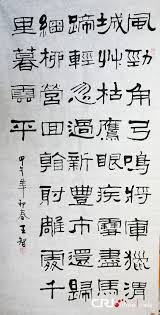 風勁角弓鳴將軍獵渭
城艸枯鷹眼疾雪盡馬
蹄輕忽過新豐市還歸
細柳營回看射雕處千
里暮雲平
甲午年初春王智
CRI